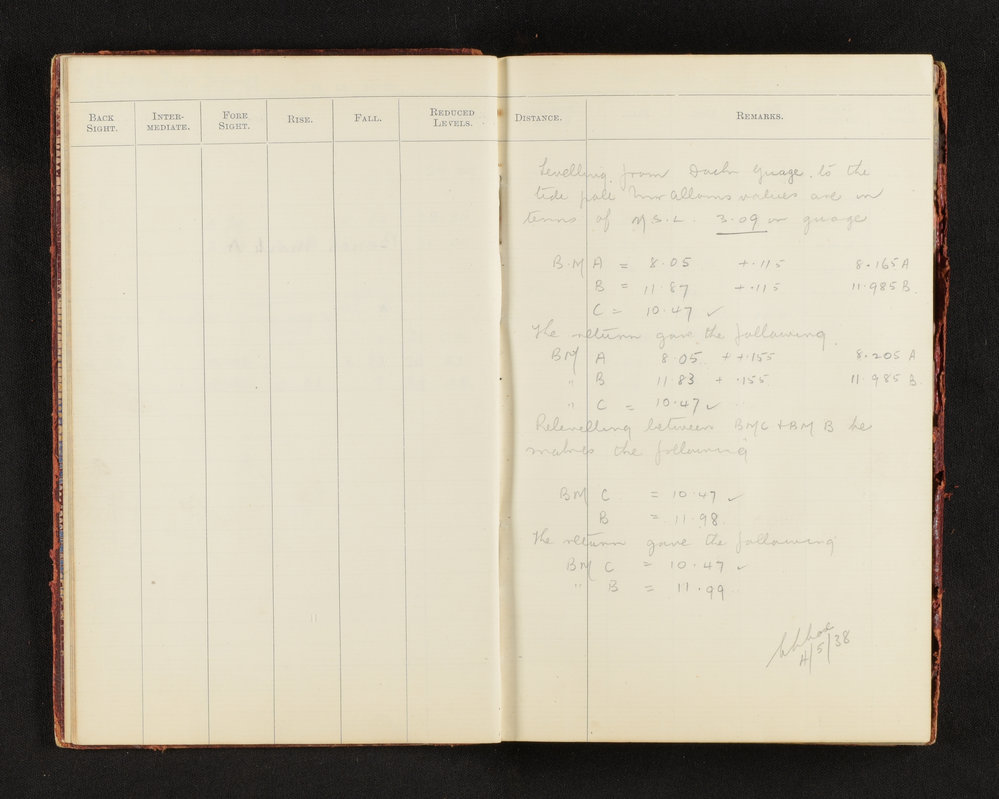 BACK SIGHT. INTER-MEDIATE. FORE SIGHT. RISE. FALL. REDUCED LEVELS. DISTANCE. REMARKS.
Levelling from Dach guage to the
tide pole Mr Alloms values are in
terms of M.S.L. 3.09 on guage
B.M A = 8.05 +.115 8.165 A
B = 11.87 +.115 11.985 B.
C = 10.47 ✓
The return gave the following
BM A 8.05 + +.155 8.205 A
" B 11.83 + .155 11.985 B.
" C = 10.47 ✓
Relevelling between BMC + BM B he
makes the following
BM C = 10.47 ✓
B = 11.98
The return gave the following
BM C = 10.47 ✓
" B = 11.99
4/5/38